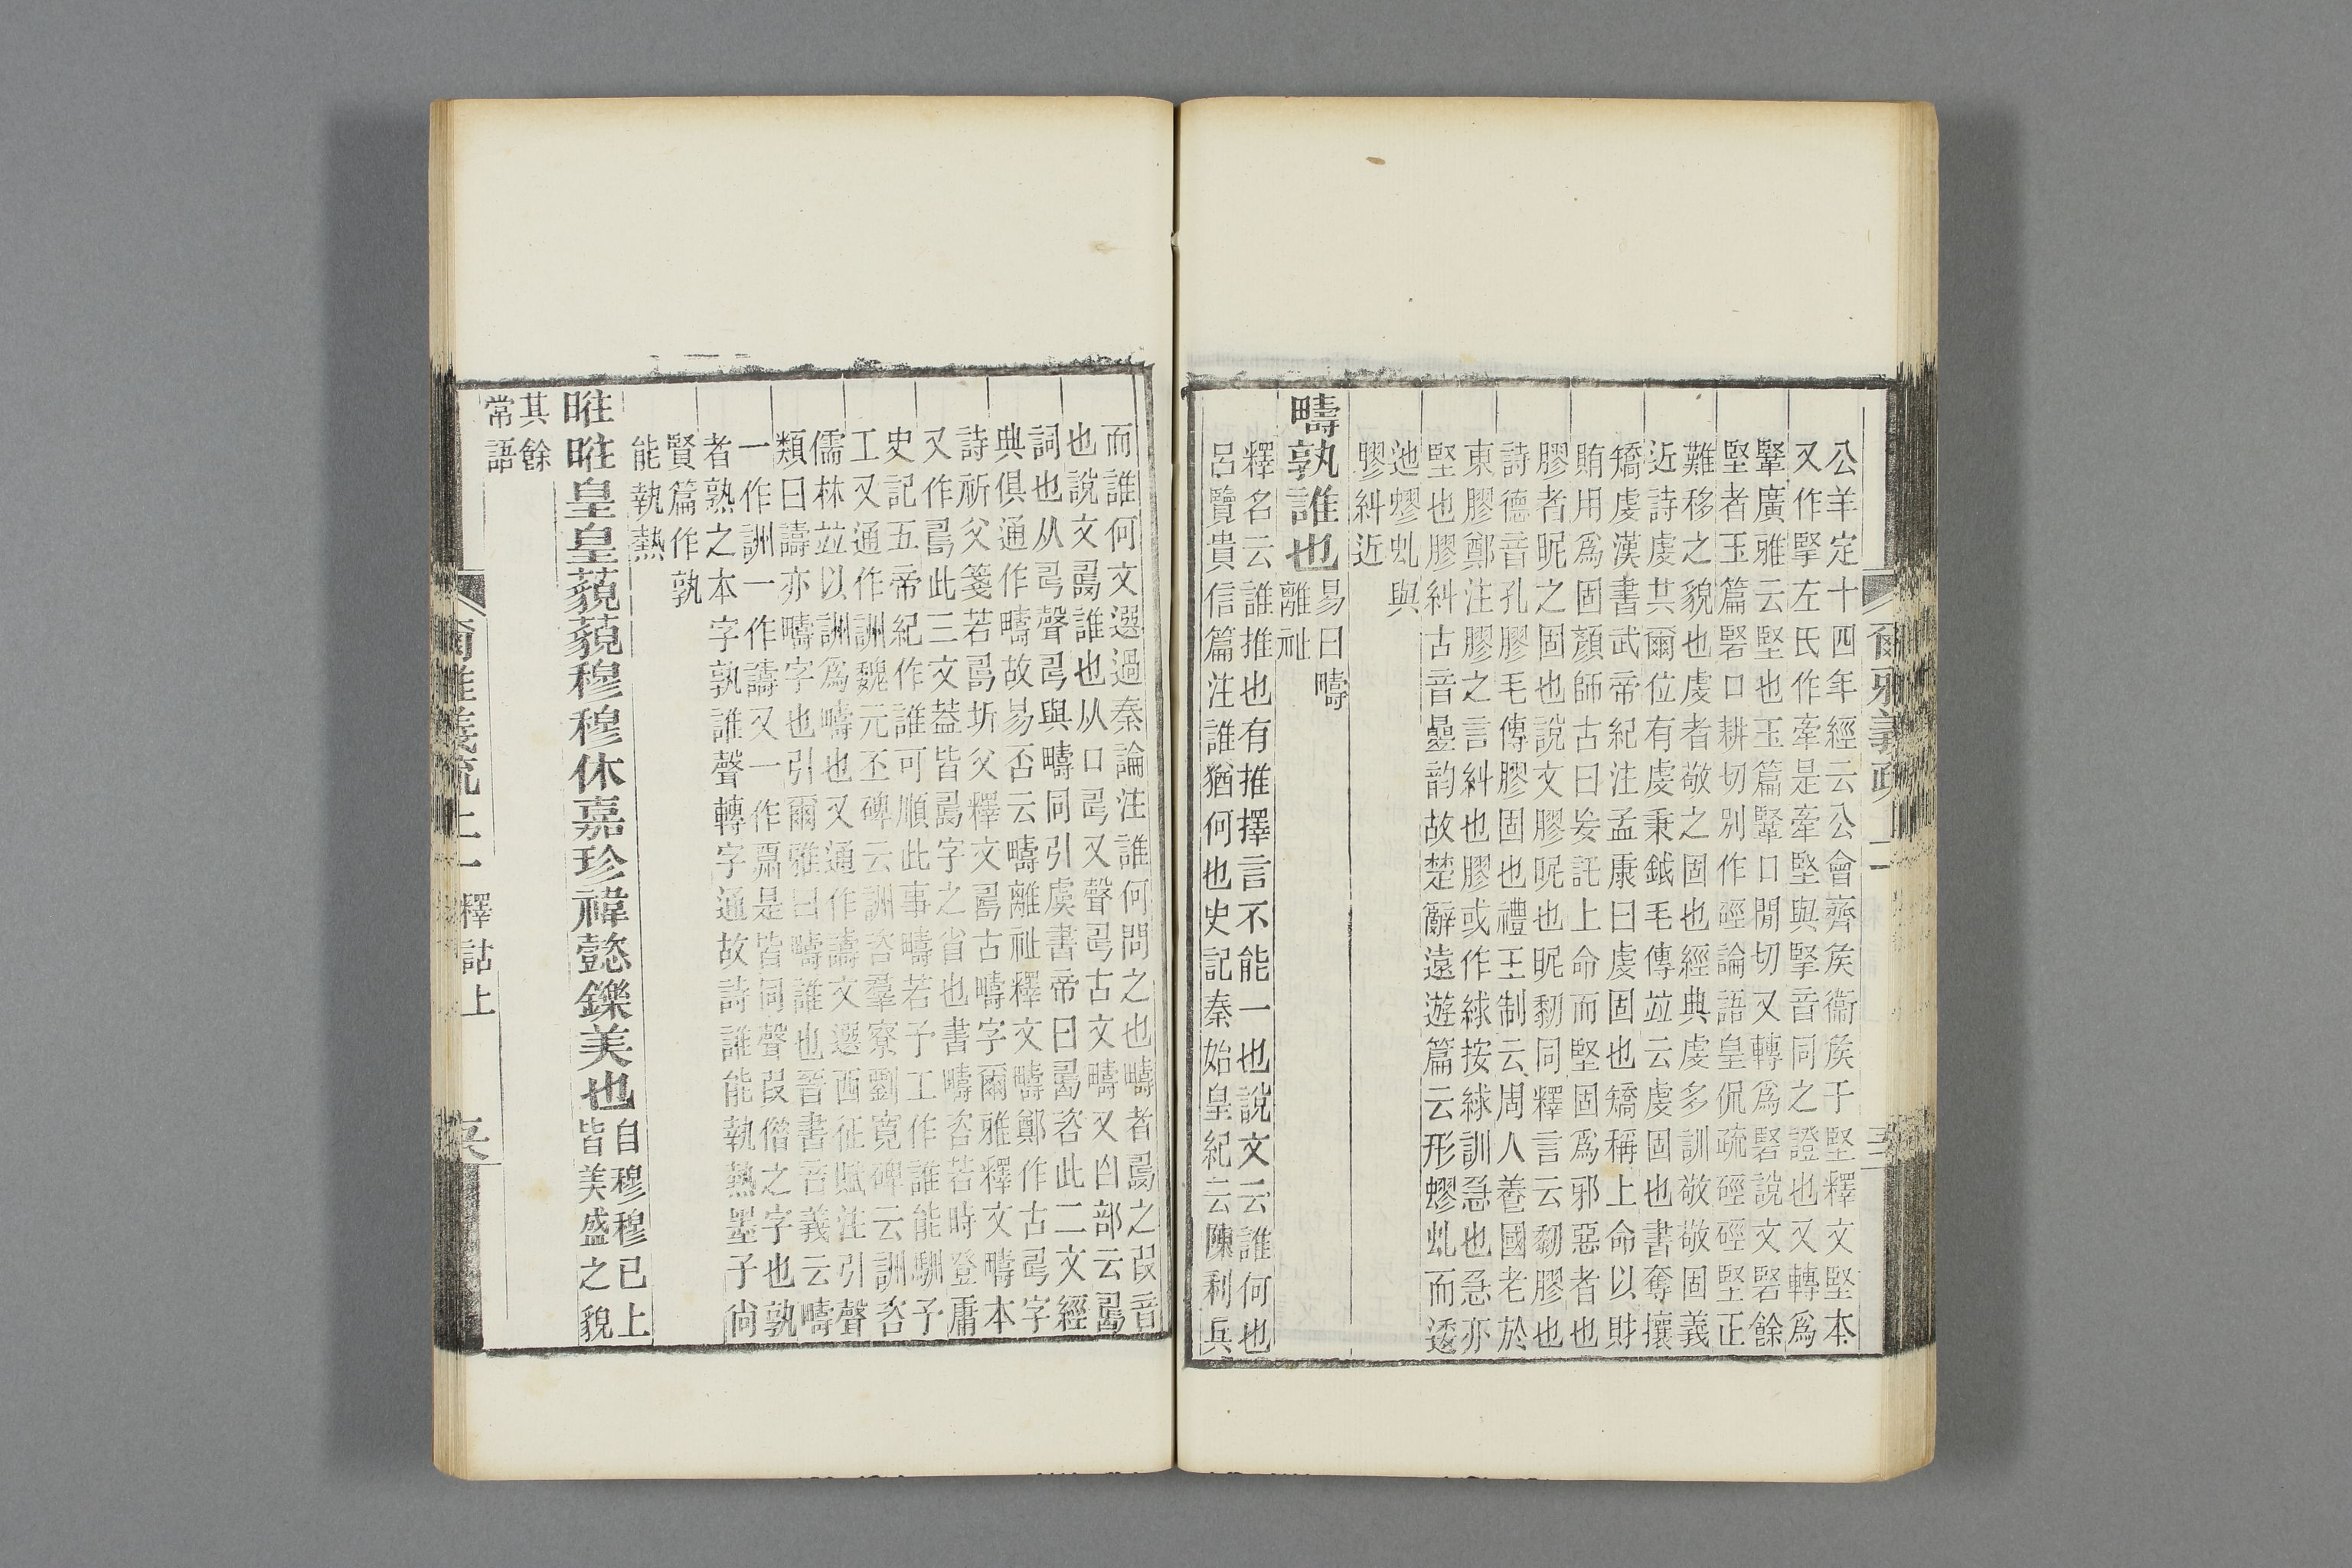 爾雅義疏 上一
公羊定十四年經云公會齊矦衞矦于堅釋文堅本
又作掔左氏作牽是牽堅與掔音同之證也又轉爲
鞏廣雅云堅也玉篇鞏口閒切又轉爲硻說文硻餘
堅者玉篇硻口耕切別作硜論語皇侃疏硜硜堅正
難移之貌也虔者敬之固也經典虔多訓敬敬固義
近詩虔共爾位有虔秉鉞毛傳竝云虔固也書奪攘
矯虔漢書武帝紀注孟康曰虔固也矯稱上命以財
賄用爲固顏師古曰妄託上命而堅固爲邪惡者也
膠者昵之固也說文膠昵也昵䵒同釋言云䵒膠也
詩德音孔膠毛傳膠固也禮王制云周人養國老於
東膠鄭注膠之言糾也膠或作絿按絿訓急也急亦
堅也膠糾古音曡韵故楚辭遠遊篇云形蟉虬而逶
迆蟉虬與
膠糾近
疇孰誰也易曰疇
離祉
釋名云誰推也有推擇言不能一也說文云誰何也
呂覽貴信篇注誰猶何也史記秦始皇紀云陳利兵
而誰何文選過秦論注誰何問之也疇者𠷎之叚音
也說文𠷎誰也从口𢏚又聲𢏚古文疇又白部云𠷎
詞也从𢏚聲𢏚與疇同引虞書帝曰𠷎咨此二文經
典俱通作疇故易否云疇離祉釋文疇鄭作古𢏚字
詩祈父箋若𠷎圻父釋文𠷎古疇字爾雅釋文疇本
又作𠷎此三文葢皆𠷎字之省也書疇咨若時登庸
史記五帝紀作誰可順此事疇若予工作誰能馴予
工又通作詶魏元丕碑云詶咨羣寮劉寛碑云訓咨
儒林竝以詶爲疇也又通作譸文選西征賦注引聲
類曰譸亦疇字也引爾雅曰疇誰也晉書音義云疇
一作詶一作譸又一作𠼡是皆同聲叚借之字也孰
者熟之本字孰誰聲轉字通故詩誰能執熱墨子尙
賢篇作孰
能執熱
暀暀皇皇藐藐穆穆休嘉珍禕懿鑠美也自穆穆已上
皆美盛之貌
其餘
常語
爾雅義疏 上一 釋詁上